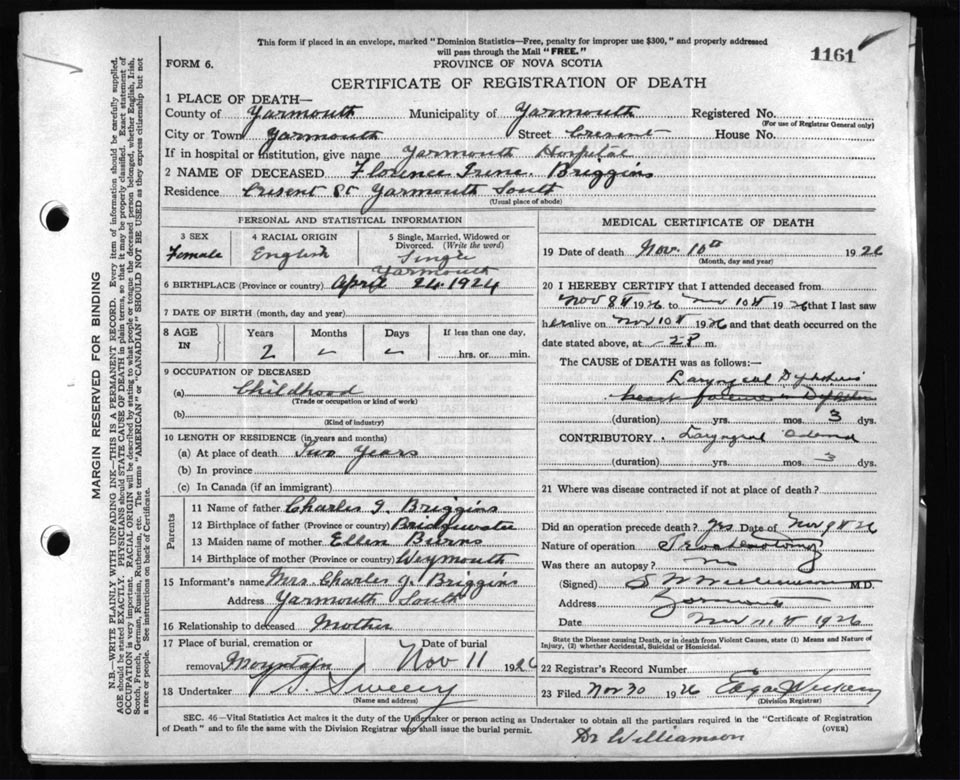 This form if placed in an envelope, marked "Dominion Statistics—Free, penalty for improper use $300," and properly addressed
will pass through the Mail "FREE."
1161
FORM 6.
PROVINCE OF NOVA SCOTIA
CERTIFICATE OF REGISTRATION OF DEATH
1 PLACE OF DEATH—
County of Yarmouth Municipality of Yarmouth Registered No.
(For use of Registrar General only)
City or Town Yarmouth Street Cresent House No.
If in hospital or institution, give name Yarmouth Hospital
2 NAME OF DECEASED Florence Irene Briggins
Residence Cresent St Yarmouth South
(Usual place of abode)
PERSONAL AND STATISTICAL INFORMATION
3 SEX 4 RACIAL ORIGIN 5 Single, Married, Widowed or
Divorced. (Write the word)
Female English Single
Yarmouth
6 BIRTHPLACE (Province or country) April 24. 1924
7 DATE OF BIRTH (month, day and year)
8 AGE IN Years Months Days If less than one day,
2 hrs. or min.
9 OCCUPATION OF DECEASED
(a) Childhood
(Trade or occupation or kind of work)
(b)
(Kind of industry)
10 LENGTH OF RESIDENCE (in years and months)
(a) At place of death Two Years
(b) In province
(c) In Canada (if an immigrant)
Parents
11 Name of father Charles J. Briggins
12 Birthplace of father (Province or country) Bridgewater
13 Maiden name of mother Ellen Burns
14 Birthplace of mother (Province or country) Weymouth
15 Informant's name Mrs. Charles J. Briggins
Address Yarmouth South
16 Relationship to deceased Mother
17 Place of burial, cremation or Date of burial
removal Mountain Nov 11 1926
18 Undertaker V S. Sweeny
(Name and address)
MEDICAL CERTIFICATE OF DEATH
19 Date of death Nov. 10th 1926
(Month, day and year)
20 I HEREBY CERTIFY that I attended deceased from
Nov 8th 1926 to Nov 10th 1926 that I last saw
her alive on Nov 10th 1926 and that death occurred on the
date stated above, at 2 P m.
The CAUSE OF DEATH was as follows:—
Laryngeal
(duration) yrs. mos. 3 dys.
CONTRIBUTORY. Laryngeal
(duration) yrs. mos. 3 dys.
21 Where was disease contracted if not at place of death?
Did an operation precede death? Yes Date of Nov 9th 26
Nature of operation Tracheotomy
Was there an autopsy? no
(Signed) S W Williamson M.D.
Address Yarmouth
Date Nov 11th 1926
State the Disease causing Death, or in death from Violent Causes, state (1) Means and Nature of
Injury, (2) whether Accidental, Suicidal or Homicidal.
22 Registrar's Record Number
23 Filed Nov 30 1926 Edgar
(Division Registrar)
SEC. 46—Vital Statistics Act makes it the duty of the Undertaker or person acting as Undertaker to obtain all the particulars required in the "Certificate of Registration
of Death" and to file the same with the Division Registrar who shall issue the burial permit.
(OVER)
Dr Williamson
MARGIN RESERVED FOR BINDING
N.B.—WRITE PLAINLY WITH UNFADING INK—THIS IS A PERMANENT RECORD. Every item of information should be carefully supplied.
AGE should be stated EXACTLY. PHYSICIANS should STATE CAUSE OF DEATH in plain terms, so that it may be properly classified. Exact statement of
OCCUPATION is very important. RACIAL ORIGIN will be described by stating to what people or tongue the deceased person belonged, whether English, Irish,
Scotch, French, German, Russian, Ruthenian, etc. The terms "AMERICAN" or "CANADIAN" SHOULD NOT BE USED as they express citizenship but not
a race or people. See instructions on back of Certificate.